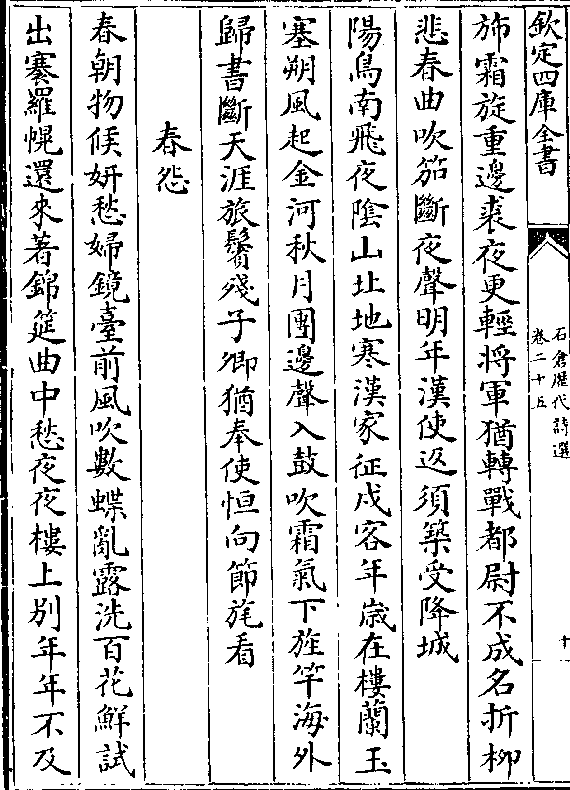 欽定四庫全書
石倉歷代詩選
卷二十五
十
斾霜旋重邊裘夜更輕將軍猶轉戰都尉不成名折柳
悲春曲吹笳斷夜聲明年漢使返須築受降城
陽鳥南飛夜陰山北地寒漢家征戍客年歲在樓蘭玉
塞朔風起金河秋月團邊聲入鼓吹霜氣下旌竿海外
歸書斷天涯旅鬢殘子卿猶奉使恒向節旄看
春怨
春朝物候妍愁婦鏡臺前風吹數蝶亂露洗百花鮮試
出褰羅幌還來著錦筵曲中愁夜夜樓上別年年不及